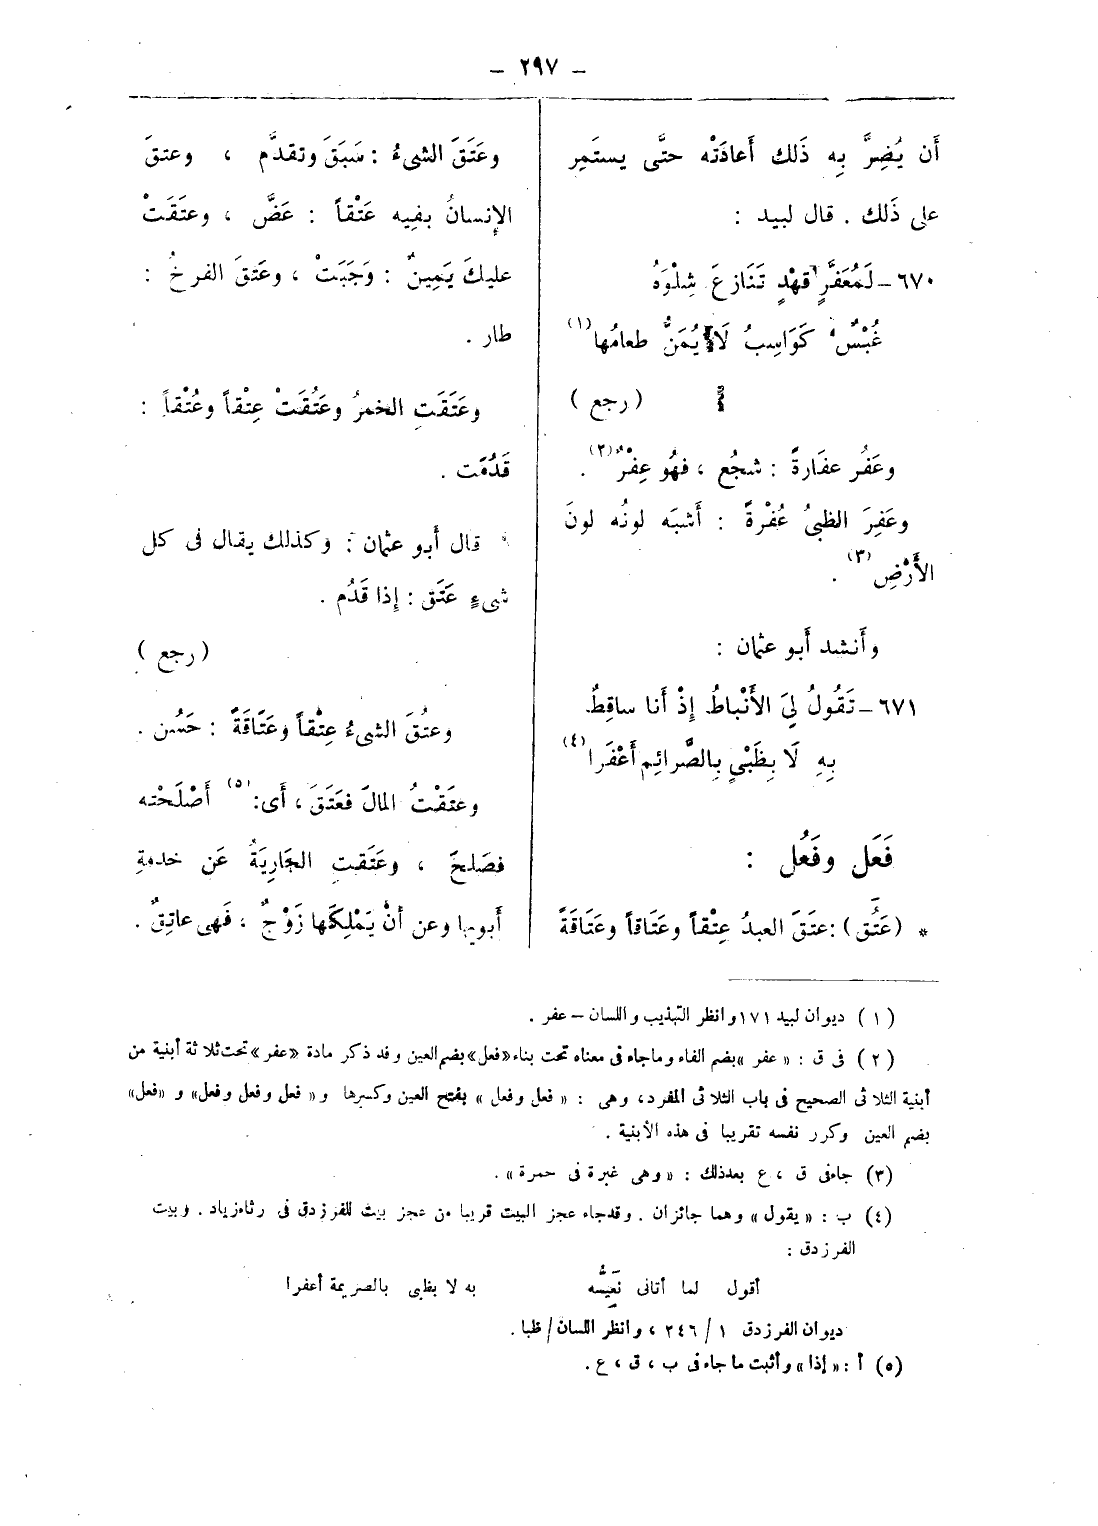 – ٢٩٧ –
أَن يُضِرَّ بِه ذَلك أَعادَتْه حتَّى يستَمِر
على ذَلك . قال لبيد :
٦٧٠ – لَمُعَفَّرٍ قَهْدٍ تَنَازَعَ شِلْوَهُ
غُبْسٌ كَوَاسِبُ لَا يُمَنُّ طعامُها (١)
( رجع )
وعَفُر عفَارةً : شجُع ، فهُو عِفْرٌ (٢) .
وعَفِرَ الظبىُ عُفْرةً : أَشبَه لونُه لونَ
الأَرْضِ (٣) .
وأَنشد أَبو عثمان :
٦٧١ – تَقُولُ لِيَ الأَنْباطُ إِذْ أَنا ساقِطٌ
بِهِ لَا بِظَبْيٍ بِالصَّرائِمِ أَعْفَرا (٤)
فَعَل وفَعُل :
* (عَتُق) : عتَقَ العبدُ عِتْقاً وعَتَاقاً وعَتَاقَةً
وعَتَقَ الشىءُ : سَبَقَ وتقدَّم ، وعتقَ
الإِنسانُ بفِيه عَتْقاً : عَضَّ ، وعتَقَتْ
عليكَ يَمِينٌ : وَجَبَتْ ، وعَتقَ الفرخُ :
طار .
وعَتَقَتِ الخمرُ وعَتُقَتْ عِتْقاً وعُتْقاً :
قَدُمَت .
قال أَبو عثمان : وكذلك يقال فى كل
شىءٍ عَتَق : إِذا قَدُم .
( رجع )
وعتُقَ الشىءُ عِتْقاً وعَتَاقَةً : حَسُن .
وعتَقْتُ المالَ فعَتَقَ ، أَى : (٥) أَصْلَحْته
فصَلحَ ، وعَتَقتِ الجَارِيَةُ عَن خدمةِ
أَبويها وعن أَنْ يَمْلِكَها زَوْجٌ ، فَهى عاتِقٌ .
( ١ ) ديوان لبيد ١٧١ وانظر التهذيب واللسان – عفر .
( ٢ ) فى ق : « عفر » بضم الفاء وما جاء فى معناه تحت بناء «فعل» بضم العين وقد ذكر مادة «عفر» تحت ثلاثة أبنية من
أبنية الثلاثى الصحيح فى باب الثلاثى المفرد، وهى : « فعل وفعل » بفتح العين وكسرها و « فعل وفعل وفعل» و «فعل»
بضم العين وكرر نفسه تقريبا فى هذه الأبنية .
(٣) جاء فى ق ، ع بعد ذلك : « وهى غبرة فى حمرة » .
(٤) ب : « يقول » وهما جائزان . وقد جاء عجز البيت قريبا من عجز بيت للفرزدق فى رثاء زياد . وبيت
الفرزدق :
أقول لما أتانى نَعِيُّه به لا بظبى بالصريمة أعفرا
ديوان الفرزدق ١ / ٢٤٦ ، وانظر اللسان / ظبا .
(٥) أ : « إذا » وأثبت ما جاء فى ب ، ق ، ع .